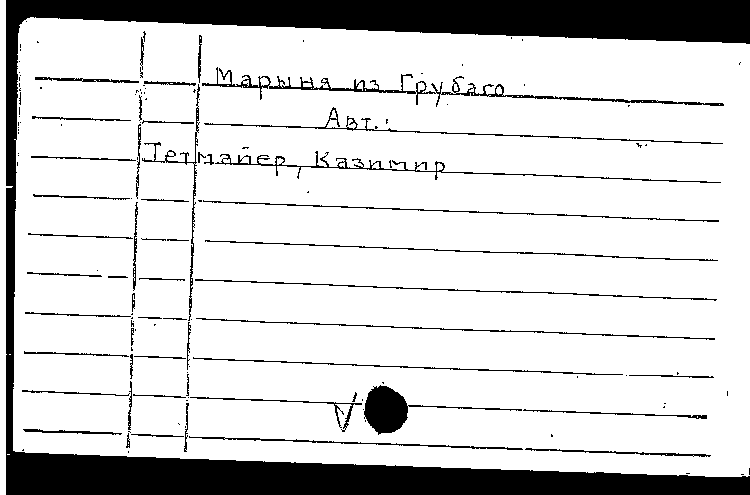 Марыня из Грубаго
Авт.:
Тетмайер, Казимир